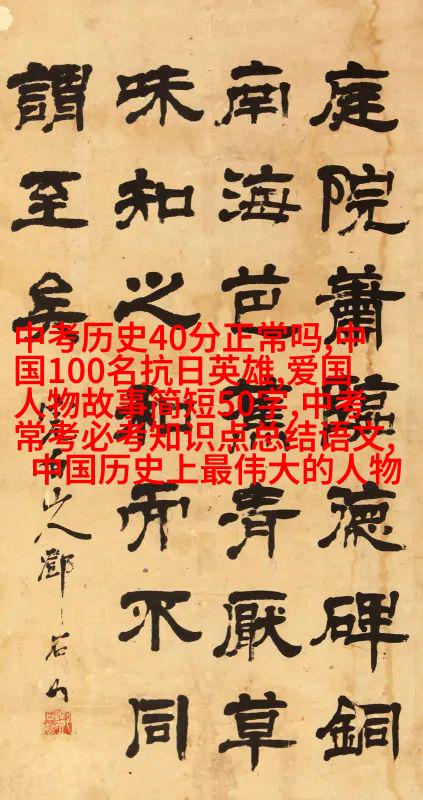 中考历史40分正常吗,中
国100名抗日英雄,爱国
人物故事简短50字,中考
常考必考知识点总结语文,
中国历史上最伟大的人物
庭院蕭臨德碑銅
南海芭清厭草
味知而不同
謂至矣
山人鄧石如